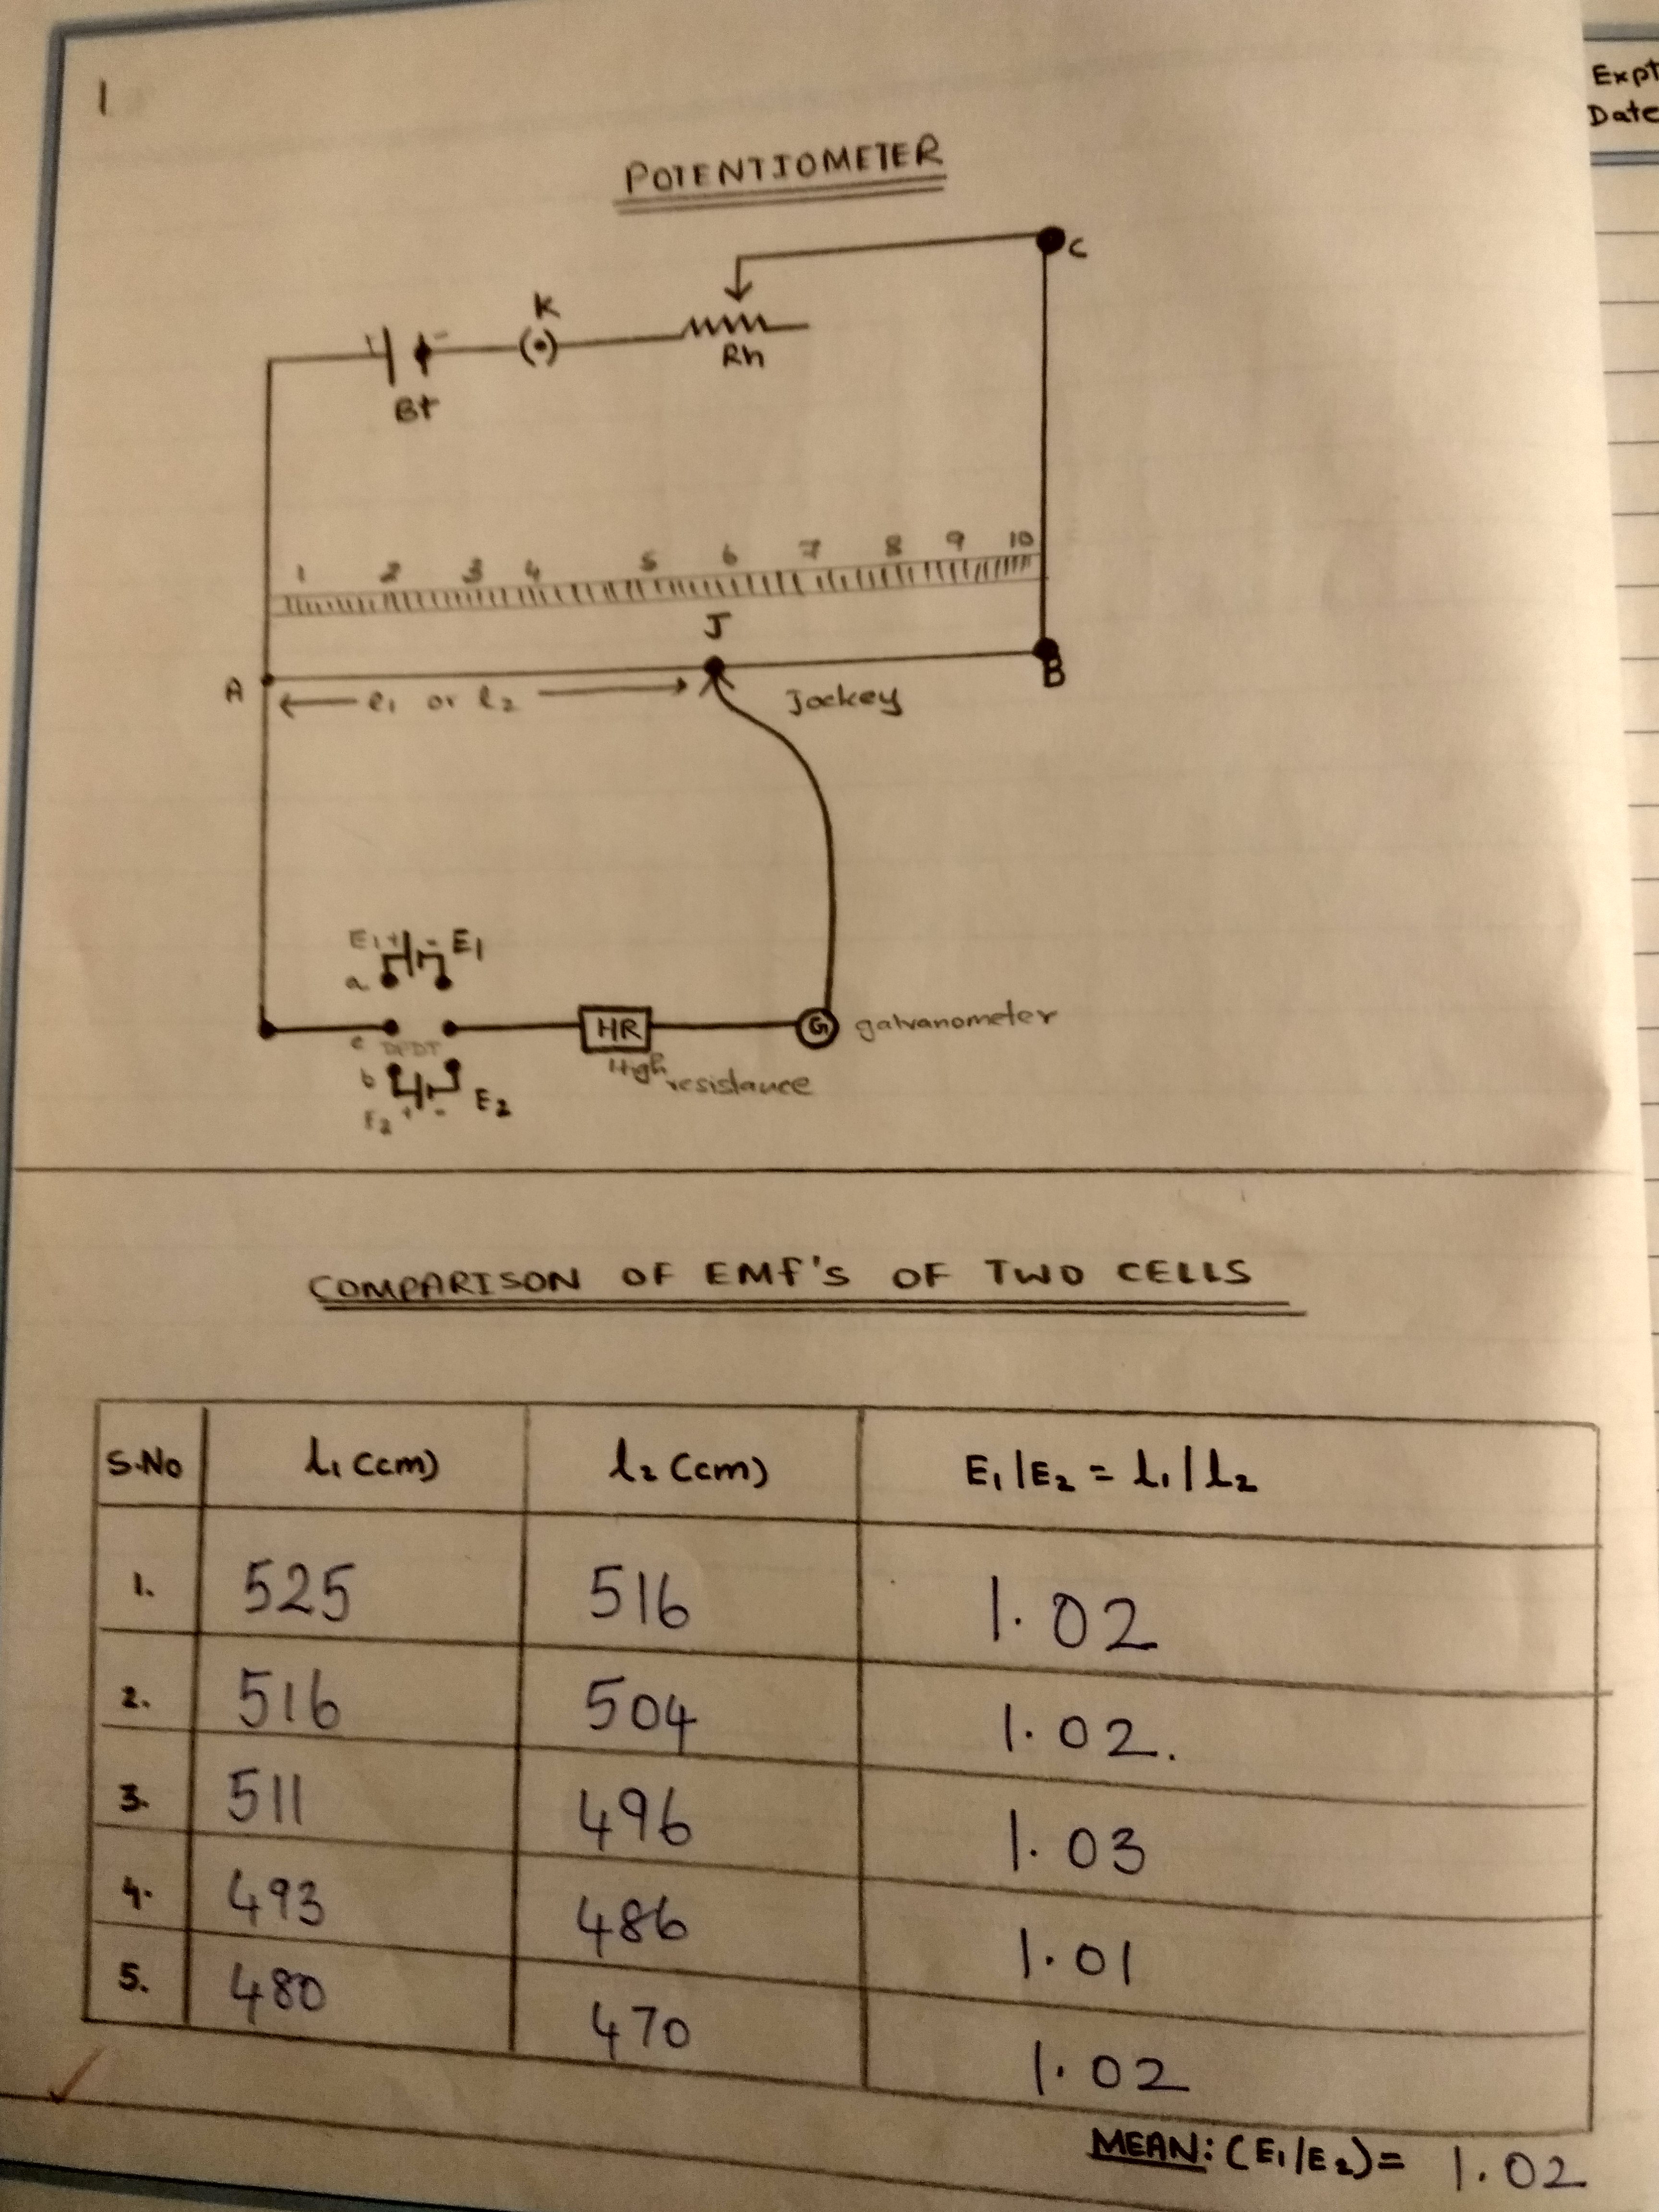 1
Expt
Date
POTENTIOMETER
C
K
+ -
Rh
Bt
1 2 3 4 5 6 7 8 9 10
J
A B
l₁ or l₂ Jockey
E₁ + - E₁
a
HR G galvanometer
c DPDT
High resistance
b
E₂ + - E₂
COMPARISON OF EMF'S OF TWO CELLS
S.No l₁ (cm) l₂ (cm) E₁/E₂ = l₁/l₂
1. 525 516 1.02
2. 516 504 1.02.
3. 511 496 1.03
4. 493 486 1.01
5. 480 470 1.02
MEAN: (E₁/E₂) = 1.02